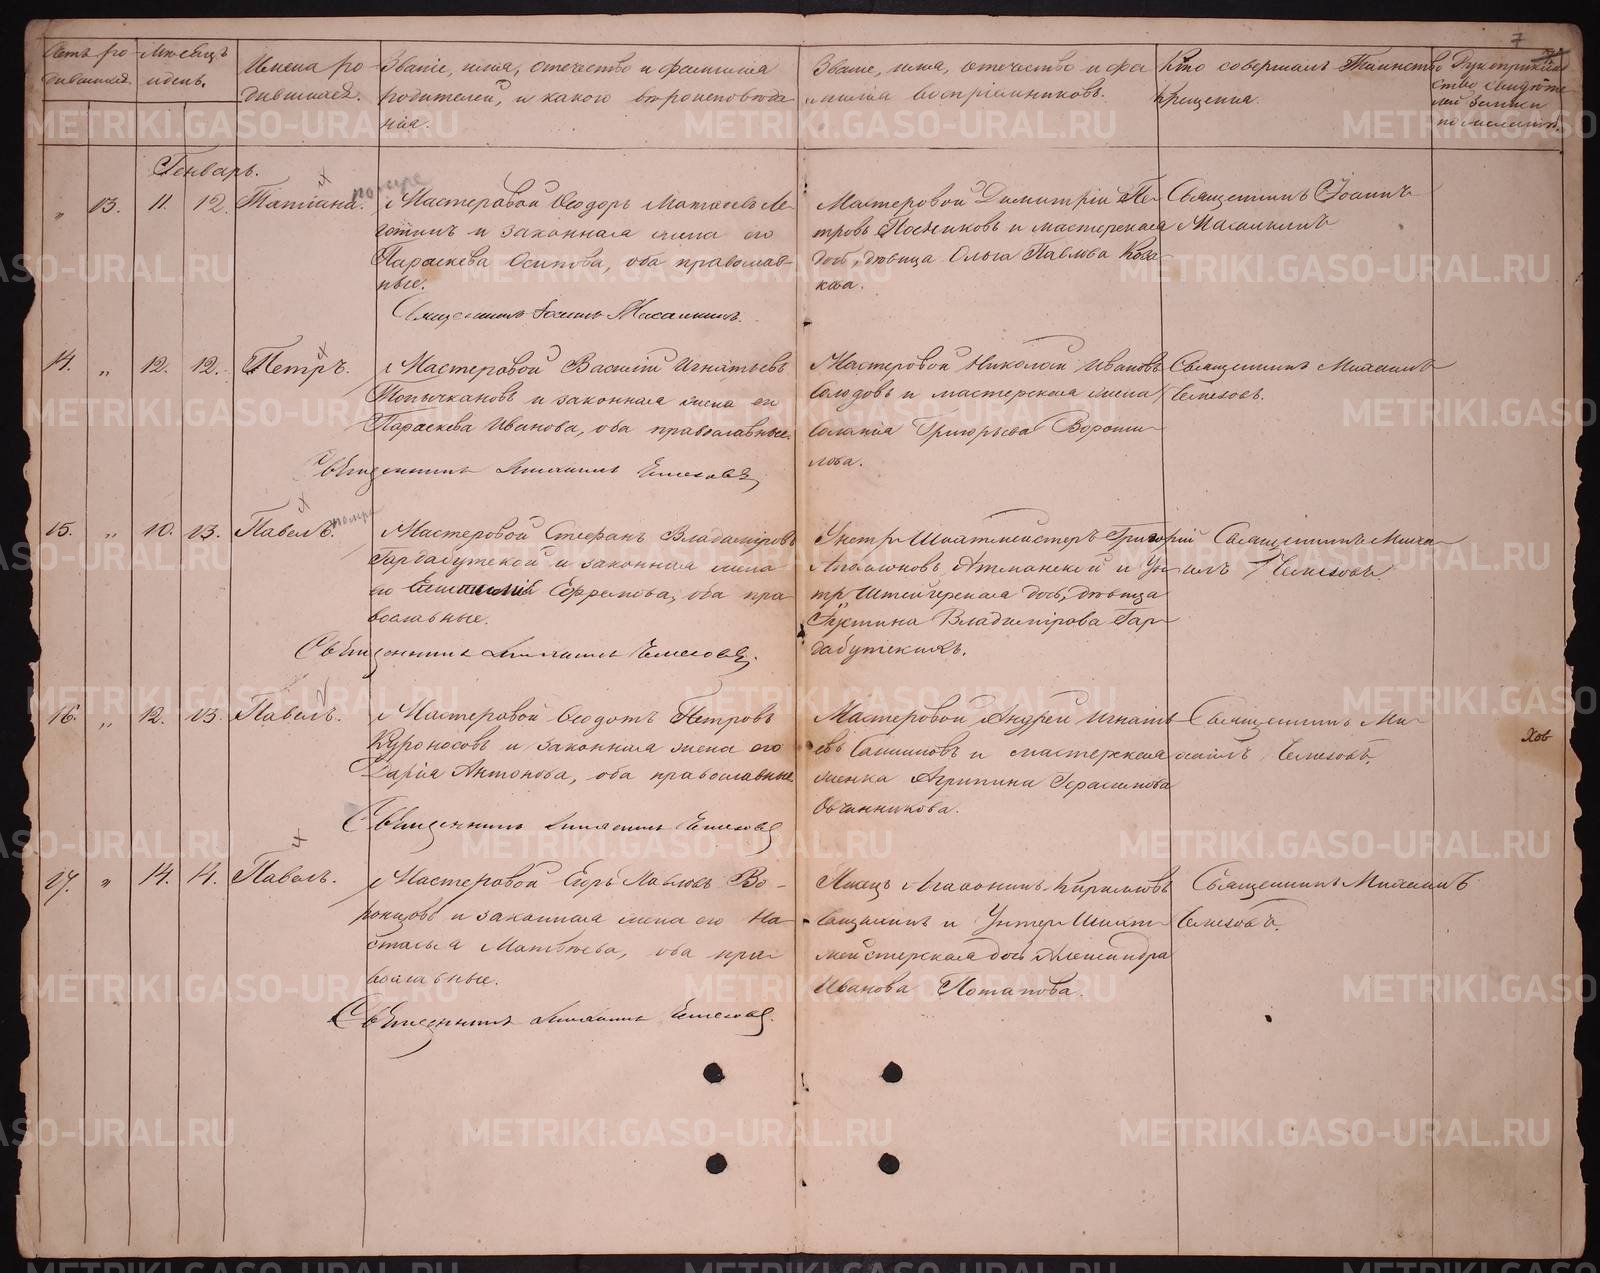 7
Счетъ ро-
дившихся.
Мѣсяцъ
и день.
Имена ро-
дившихся.
Званіе, имя, отечество и фамилія
родителей, и какого вѣроисповѣда-
нія.
Званіе, имя, отечество и фа-
милія воспріемниковъ.
Кто совершалъ Таинство
крещенія.
Рукоприклад-
ство свидѣте-
лей записи
по желанію.
Генварь.
„ 13. 11. 12. Татіана. помре
Мастеровой Ѳеодоръ Матвѣевъ
и законная жена его
Параскева Осипова, оба православ-
ные.
Священникъ Іоаннъ
Мастеровой Димитрій Пе-
тровъ Посниковъ и мастерская
дочь, дѣвица Ольга Павлова
Священникъ Іоаннъ
14. „ 12. 12. Петръ.
Мастеровой Василій Игнатьевъ
Топычкановъ и законная жена его
Параскева Иванова, оба православные.
Священникъ Михаилъ Челеховъ
Мастеровой Николай Ивановъ
Солодовъ и мастерская жена
Соломія Григорьева Вороши-
лова.
Священникъ Михаилъ
Челеховъ.
15. „ 10. 13. Павелъ. помре
Мастеровой Стефанъ Владиміровъ
Гардабутской и законная жена
его Ефремова, оба пра-
вославные.
Священникъ Михаилъ Челеховъ.
Унтеръ Шихтмейстеръ Григорій
и Ун-
тръ Штейгерская дочь, дѣвица
Іустина Владимірова Гар-
дабутскихъ.
Священникъ Миха-
илъ Челеховъ.
16. „ 12. 13. Павелъ.
Мастеровой Ѳеодотъ Петровъ
Курносовъ и законная жена его
Дарія Антонова, оба православные
Священникъ Михаилъ Челеховъ
Мастеровой Андрей Игнать-
евъ и мастерская
женка Агрипина Герасимова
Овчинникова.
Священникъ Ми-
хаилъ Челеховъ.
Хов
17. „ 14. 14. Павелъ.
Мастеровой Егоръ Павловъ Во-
ронцовъ и законная жена его На-
сталья Матвѣева, оба пра-
вославные.
Священникъ Михаилъ Челеховъ.
Писецъ Кириловъ
и Унтеръ Шихт-
мейстерская дочь Александра
Иванова Потапова.
Священникъ Михаилъ
Челеховъ.
METRIKI.GASO-URAL.RU